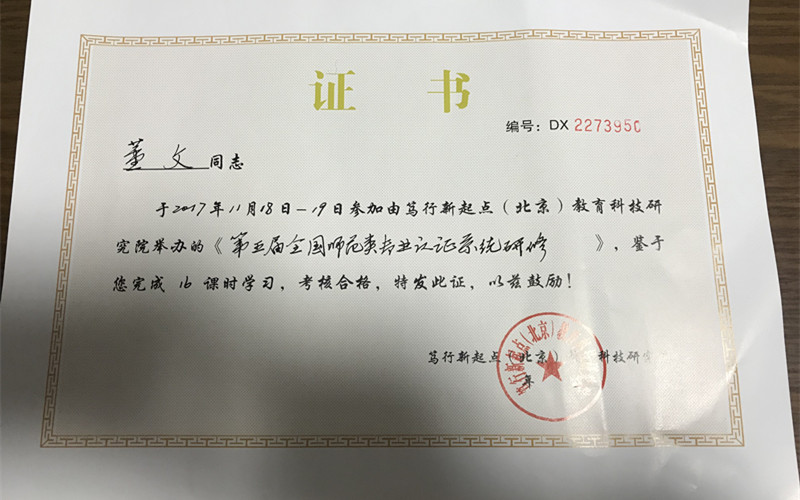 证 书
编号：DX 2273950
董文 同志
于2017年11月18日-19日参加由笃行新起点（北京）教育科技研
究院举办的《第五届全国师范类专业认证系统研修 》，鉴于
您完成 16 课时学习，考核合格，特发此证，以兹鼓励！
笃行新起点（北京）科技研
笃行新起点（北京）